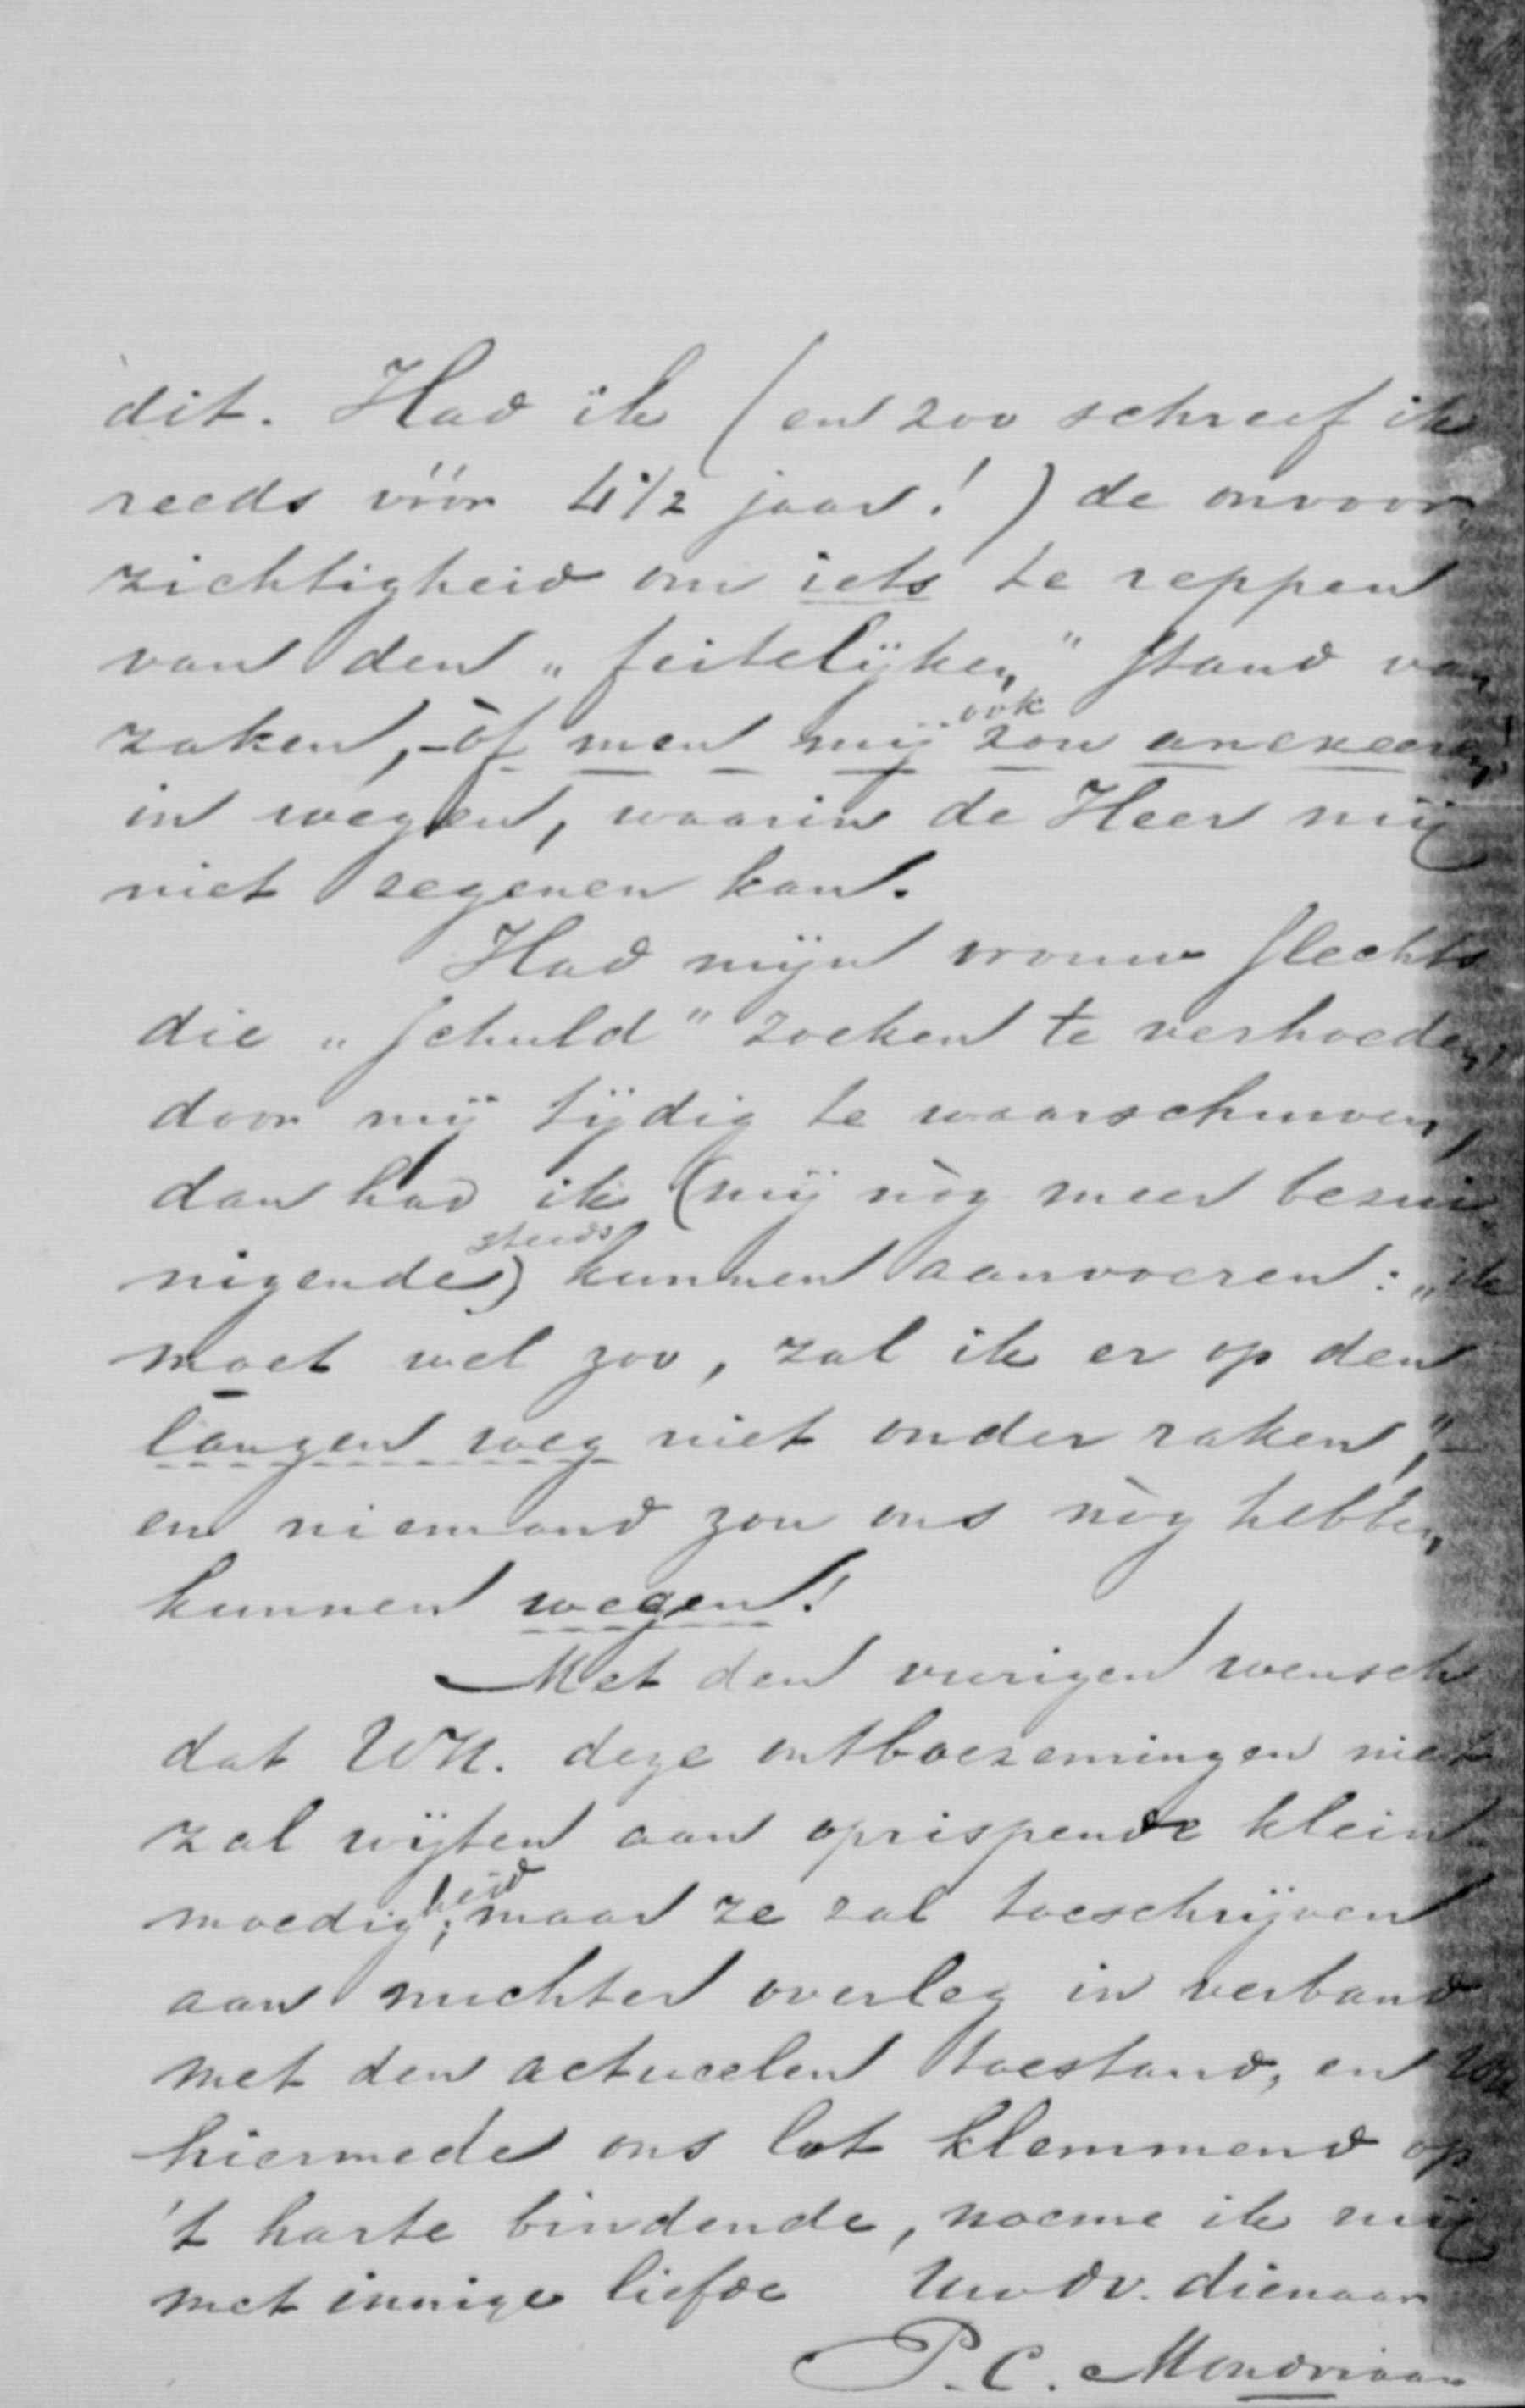 dit. Had ik (en zoo schreef ik
reeds vóór 4 1/2 jaar!) de onvoor„
zichtigheid om iets te reppen
van den „feitelijken” stand van
zaken, – òf men mij ook zou anexeeren,
in wegen, waarin de Heer mij
niet zegenen kan.
Had mijn vrouw slechts
die „schuld” zoeken te verhoeden,
door mij tijdig te waarschuwen,
dan had ik (mij nòg meer bezui„
nigende) steeds kunnen aanvoeren: „ik
moet wel zoo, zal ik er op den
langen weg niet onder raken”, –
en niemand zou ons nòg hebben
kunnen wegen!
Met den vurigen wensch
dat WH. deze ontboezemingen niet
zal wijten aan oprispende klein„
moedigheid, maar ze zal toeschrijven
aan nuchter overleg in verband
met den actueelen toestand, en
hiermede ons lot klemmend op
't harte bindende, noeme ik mij
met innige liefde Uw dv. dienaar
P. C. Mondriaan